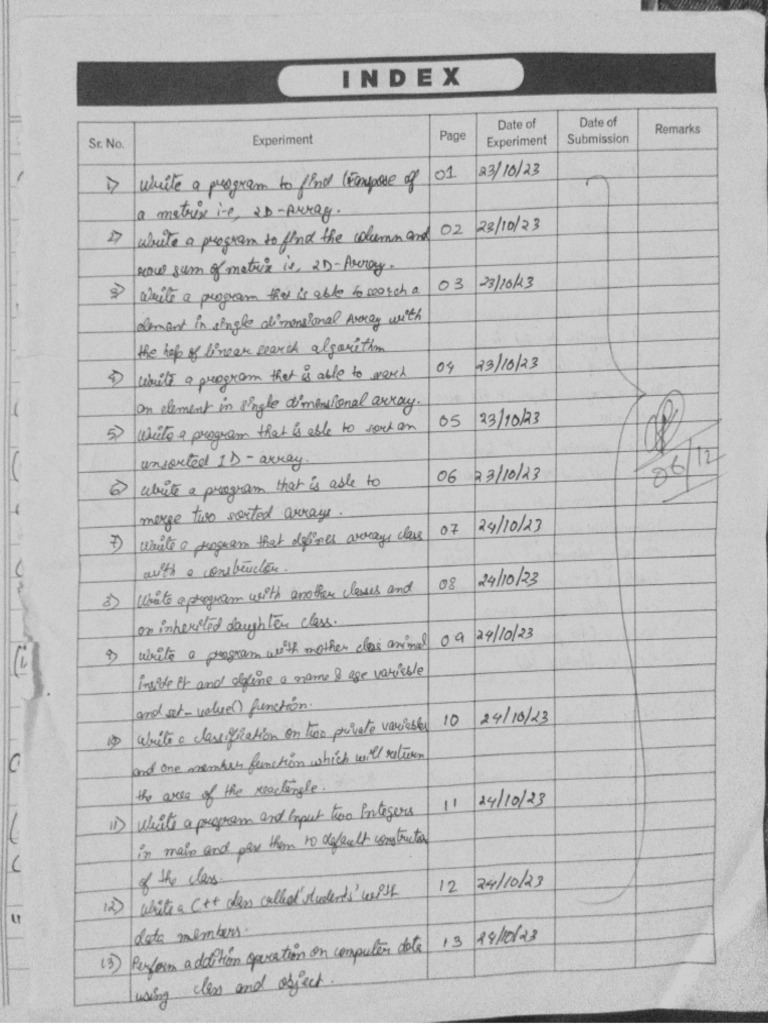 INDEX
Sr. No. Experiment Page Date of Experiment Date of Submission Remarks
1) Write a program to find transpose of 01 23/10/23
a matrix i-e, 2D-Array.
2) Write a program to find the column and 02 23/10/23
row sum of matrix ie, 2D-Array.
3) Write a program that is able to search a 03 23/10/23
element in single dimensional Array with
the help of linear search algorithm
4) Write a program that is able to search 04 23/10/23
an element in single dimensional array.
5) Write a program that is able to sort an 05 23/10/23
unsorted 1D-array.
6) Write a program that is able to 06 23/10/23
merge two sorted arrays.
7) Write a program that defines arrays class 07 24/10/23
with a constructor.
8) Write a program with another classes and 08 24/10/23
on inherited daughter class.
9) Write a program with mother class animal 09 24/10/23
inside it and define a name & age variable
and set-value() function.
10) Write a classification on two private variables 10 24/10/23
and one member function which will return
the area of the reactengle.
11) Write a program and Input two Integers 11 24/10/23
in main and pass them to default constructor
of the class.
12) Write a C++ class called 'students' with 12 24/10/23
data members.
13) Perform addition operation on computer data 13 24/10/23
using class and object.
06/12